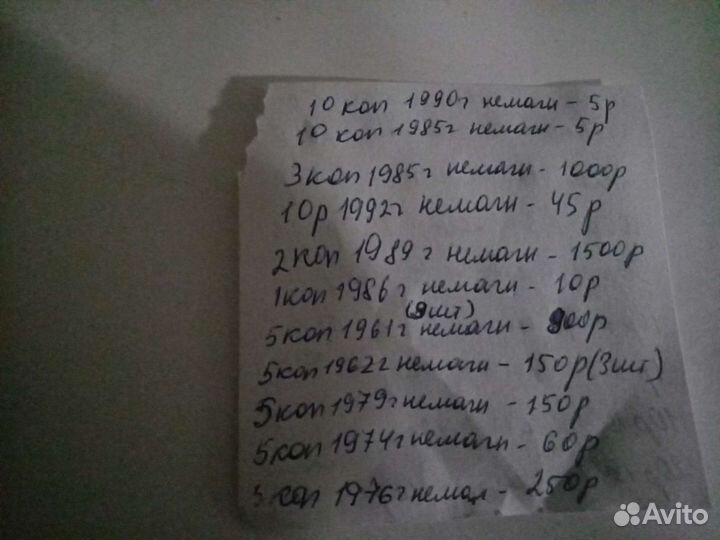 10 коп 1990г немагн - 5р
10 коп 1985г немагн - 5р
3 коп 1985г немагн - 1000р
10р 1992г немагн - 45р
2 коп 1989г немагн - 1500р
1 коп 1986г немагн - 10р
(9 шт)
5 коп 1961г немагн - 900р
5 коп 1962г немагн - 150р (3 шт)
5 коп 1979г немагн - 150р
5 коп 1974г немагн - 60р
коп 1976г - 250р
Avito